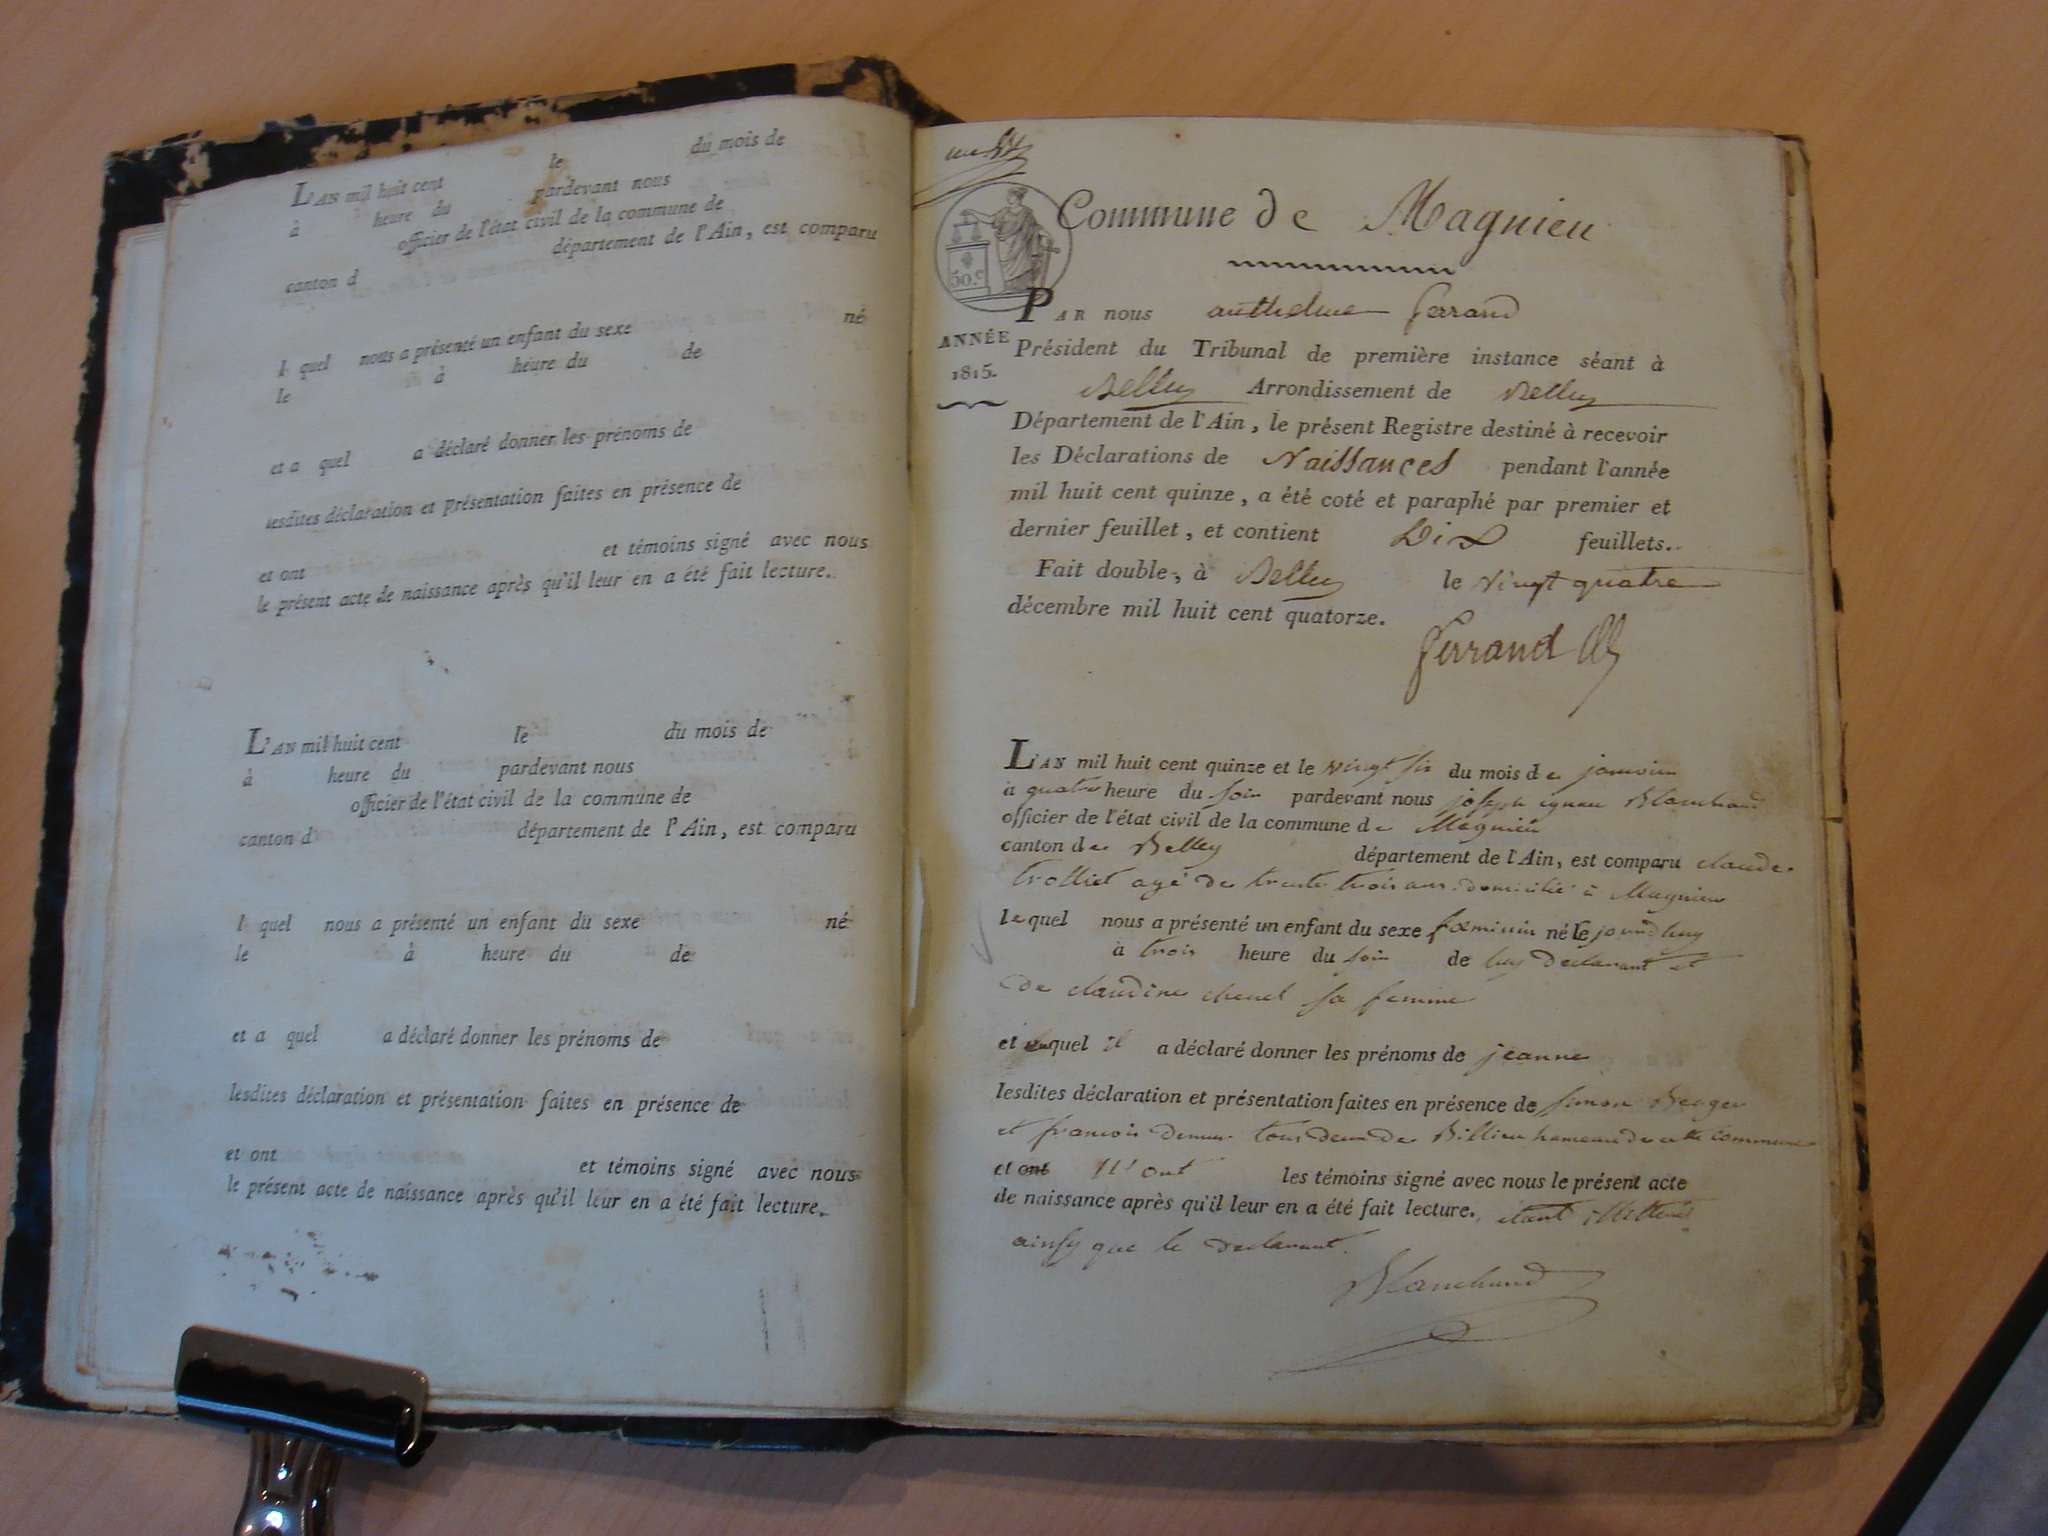 du mois de
L'AN mil huit cent le
à heure du pardevant nous
officier de l'état civil de la commune de
canton d département de l'Ain, est comparu
l quel nous a présenté un enfant du sexe né
le à heure du de
et a quel a déclaré donner les prénoms de
lesdites déclaration et présentation faites en présence de
et ont et témoins signé avec nous
le présent acte de naissance après qu'il leur en a été fait lecture.
L'AN mil huit cent le du mois de
à heure du pardevant nous
officier de l'état civil de la commune de
canton d département de l'Ain, est comparu
l quel nous a présenté un enfant du sexe né
le à heure du de
et a quel a déclaré donner les prénoms de
lesdites déclaration et présentation faites en présence de
et ont et témoins signé avec nous
le présent acte de naissance après qu'il leur en a été fait lecture.
Commune de Magnieu
50.c
ANNÉE
1815.
PAR nous anthelme ferrand
Président du Tribunal de première instance séant à
Belley Arrondissement de Belley
Département de l'Ain, le présent Registre destiné à recevoir
les Déclarations de Naissances pendant l'année
mil huit cent quinze, a été coté et paraphé par premier et
dernier feuillet, et contient Dix feuillets.
Fait double, à Belley le vingt quatre
décembre mil huit cent quatorze.
ferrand
L'AN mil huit cent quinze et le vingt six du mois de janvier
à quatre heure du soir pardevant nous joseph ignace Blanchard
officier de l'état civil de la commune de Magnieu
canton de Belley département de l'Ain, est comparu claude
trolliet agé de trente trois ans domicilié à Magnieu
le quel nous a présenté un enfant du sexe fœminin né le jourdhuy
à trois heure du soir de luy declarant et
de claudine chenel sa femme
et quel il a déclaré donner les prénoms de jeanne
lesdites déclaration et présentation faites en présence de simon Berger
et francois tous deux de Billieu hameau de cette commune
et ont n'ont les témoins signé avec nous le présent acte
de naissance après qu'il leur en a été fait lecture. étant illetteré
ainsy que le declarant.
Blanchard